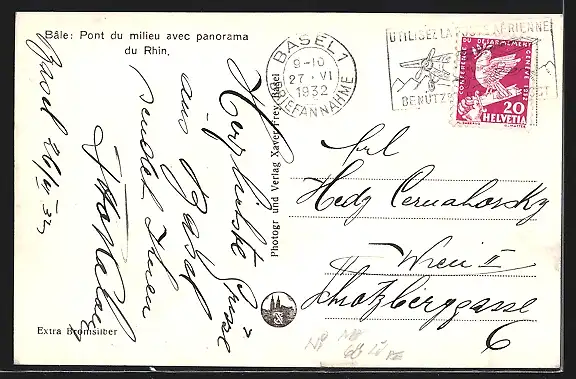 Bâle: Pont du milieu avec panorama
du Rhin.
Basel 26/VI 32
Herzlichste Grüsse
aus Basel
sendet Ihnen
Extra Bromsilber
Photogr und Verlag Xaver Frey, Basel
BASEL 1
9-10
27 · VI
1932
BRIEFANNAHME
UTILISEZ LA POSTE AÉRIENNE
BENÜTZT
CONFÉRENCE DU DÉSARMEMENT GENÈVE 1932
20
HELVETIA
Frl
Hedy Cernahovsky
Wien II
Schrotzberggasse
6